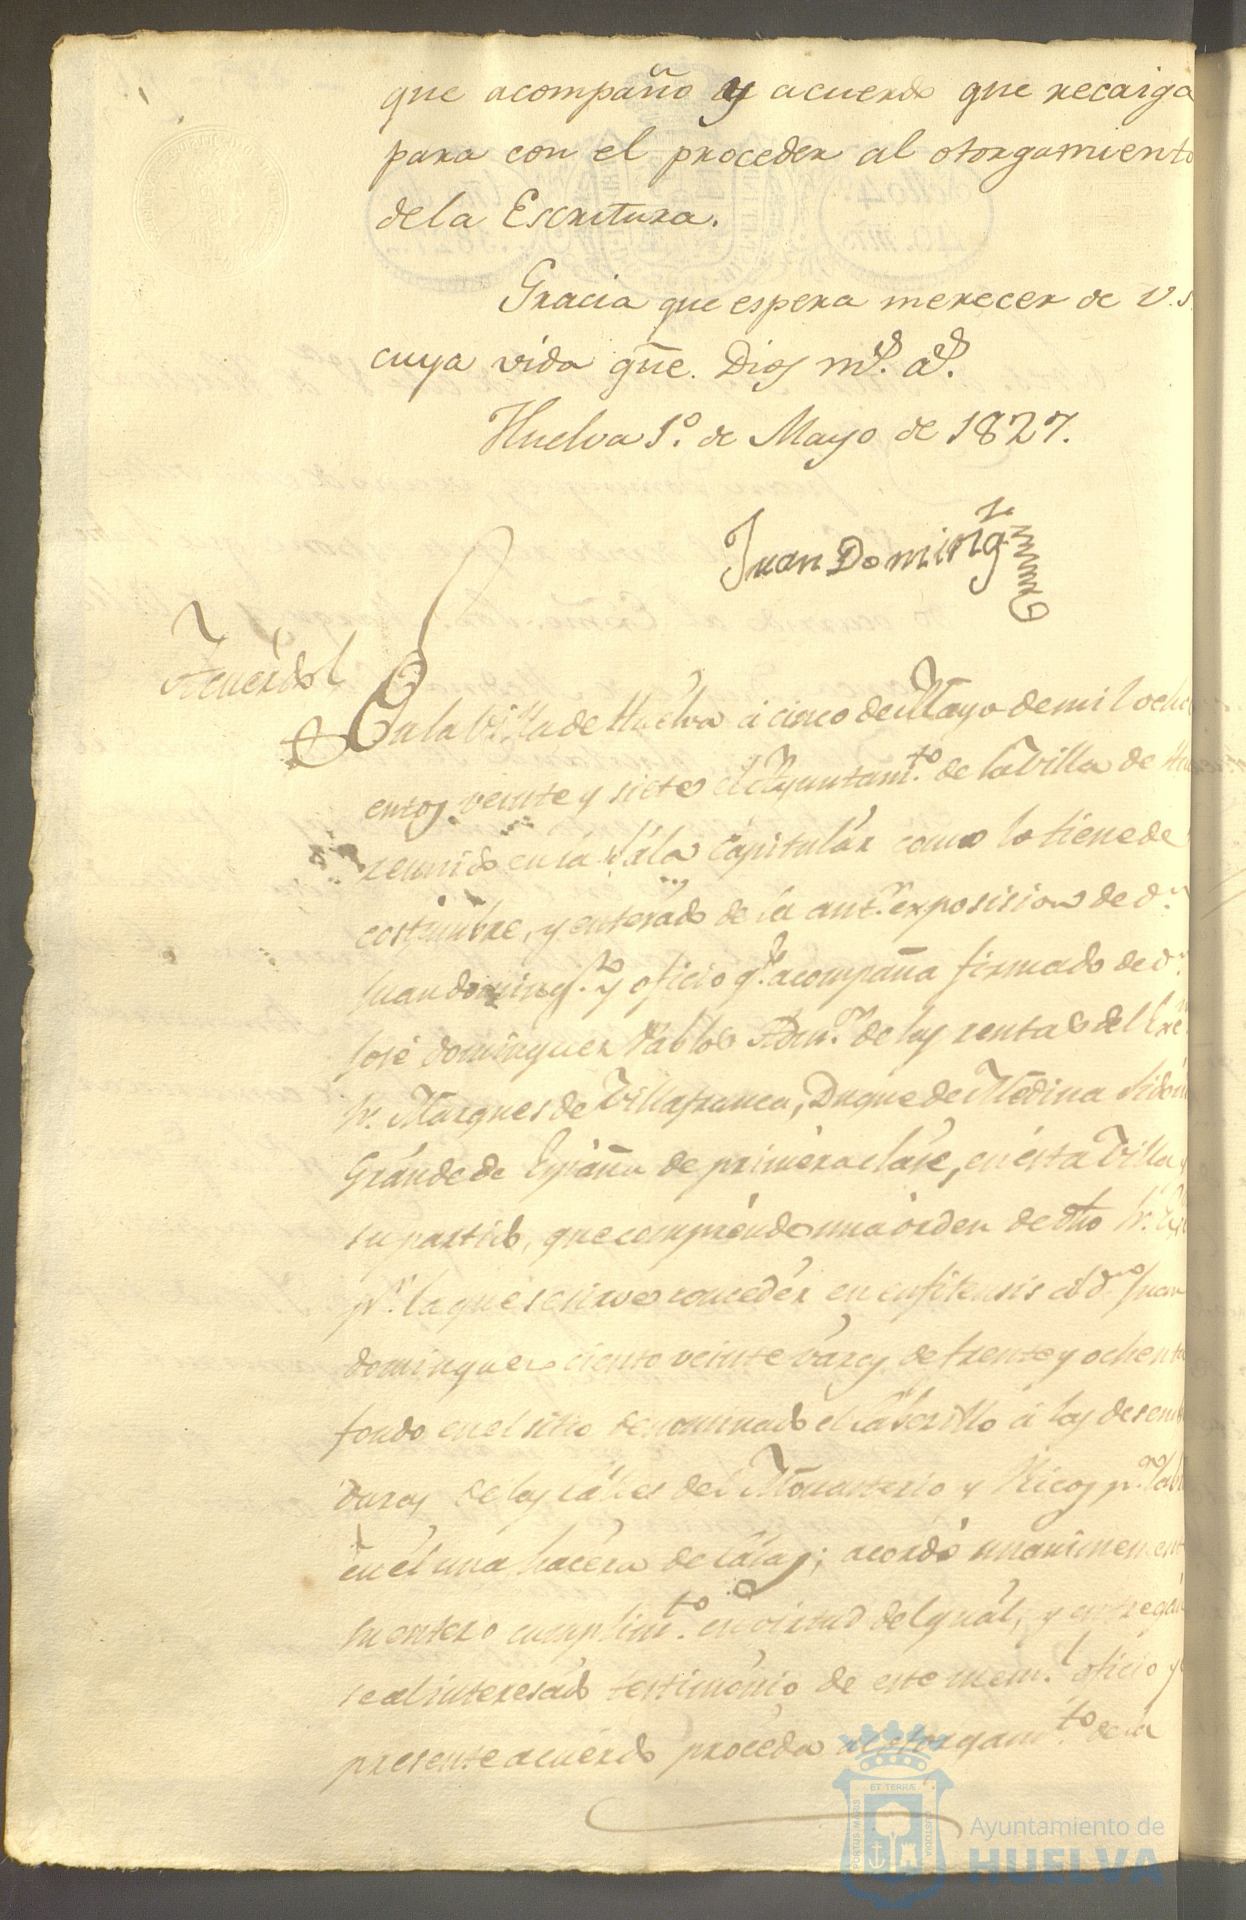 que acompaño y acuerdo que recaiga
para con el proceder al otorgamiento
dela Escritura.
Gracia que espera merecer de V.S.
cuya vida gũe. Dios ms. as.
Huelva 1º. de Mayo de 1827.
Juan Domingz
Acuerdo
En la Villa de Huelva á cinco de Mayo de mil ochoci
entos veinte y siete el Ayuntamto. de la Villa de
reunido en la Sala Capitular como lo tiene de
costumbre, y enterado de la antr. exposision de Dn.
Juan Domingz. y oficio qe. acompaña firmado de Dn.
José Dominguez Pablos Admor. de las rentas del Excmo.
Sr. Marques de Villafranca, Duque de Medina Sidonia
Grande de España de primera clase, en esta Villa y
su partido, que comprende una orden de dho Sr.
pr. la que se sirve conceder en enfiteusis á Dn. Juan
Dominguez ciento veinte varas de frente y ochenta
fondo en el sitio denominado el Caberillo á las desemb
duras de las calles del Monasterio y Ricos pa. lab
en él una hacera de casas; acordó unanimement
su entero cumplimto. en virtud del qual, y entregan
se al interesado testimonio de este meml. oficio y
presente acuerdo proceda al otorgamto. de la
ET TERRÆ
PORTUS MARIS
CUSTODIA
Ayuntamiento de
HUELVA